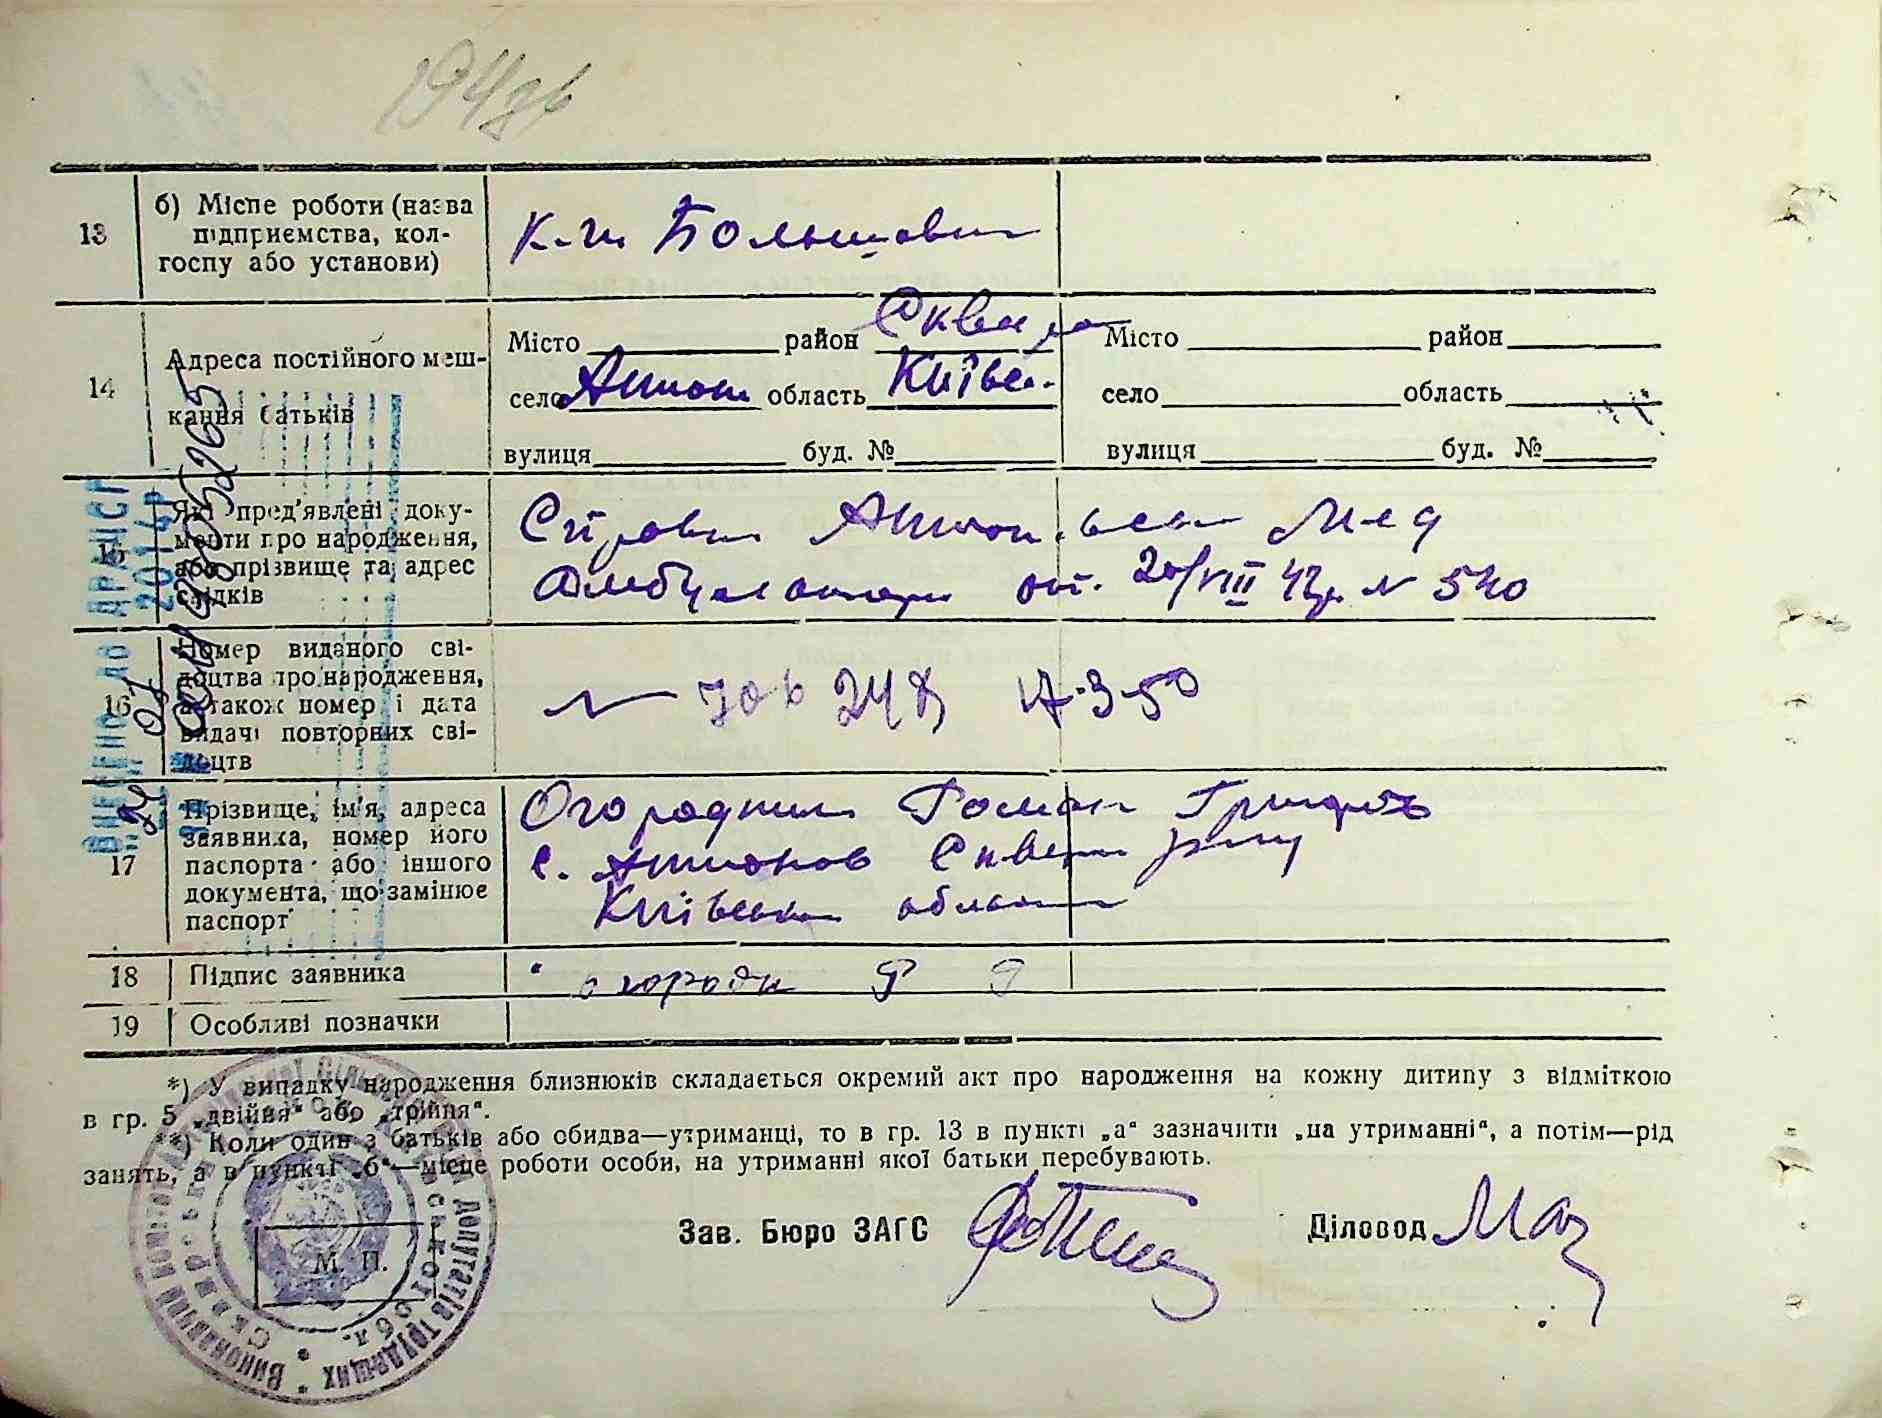 13
б) Місце роботи (назва
підприємства, кол-
госпу або установи)
к-п Большовик
14
Адреса постійного меш-
кання батьків
Місто район Сквир
село Антон область Київсь.
вулиця буд. №
Місто район
село область
вулиця буд. №
15
Які пред'явлені доку-
менти про народження,
або прізвище та адрес
свідків
Справка Антонівськ Мед
Амбулатори от. 20/VIII 42р. N 540
16
Номер виданого сві-
доцтва про народження,
а також номер і дата
видачі повторних сві-
доцтв
N 17-3-50
17
Прізвище, ім'я, адреса
заявника, номер його
паспорта або іншого
документа, що замінює
паспорт
Огородник Роман
с. Антонов Сквир р-ну
Київська область
18
Підпис заявника
огородн Р
19
Особливі позначки
*) У випадку народження близнюків складається окремий акт про народження на кожну дитину з відміткою
в гр. 5 „двійня“ або „трійня“.
**) Коли один з батьків або обидва—утриманці, то в гр. 13 в пункті „а“ зазначити „на утриманні“, а потім—рід
занять, а в пункті „б“—місце роботи особи, на утриманні якої батьки перебувають.
Зав. Бюро ЗАГС
Діловод
М. П.
Виконавчий депутатів трудящих
ВНЕСЕНО ДО ДРАЦСГ
2014р